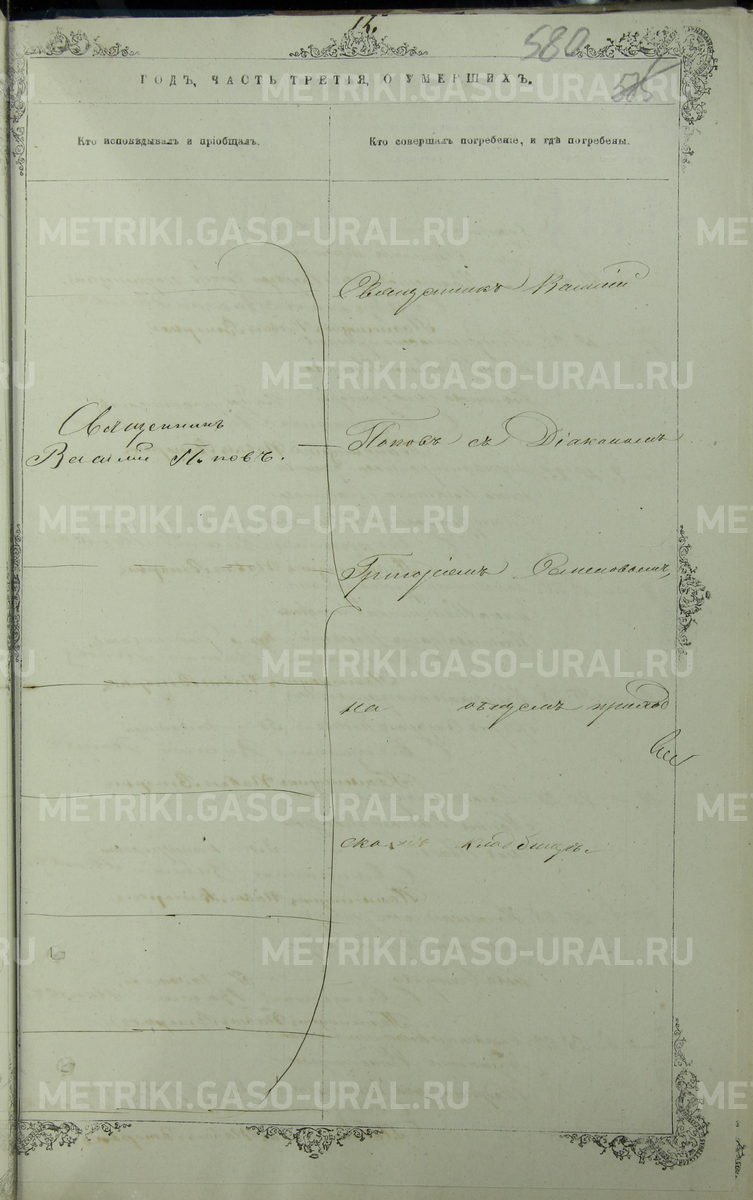 15.
580
585
ГОДЪ, ЧАСТЬ ТРЕТІЯ, О УМЕРШИХЪ.
Кто исповѣдывалъ и пріобщалъ.
Кто совершалъ погребеніе, и гдѣ погребены.
METRIKI.GASO-URAL.RU
Священникъ
Василій Поповъ.
Священникъ Василій
Поповъ съ Діакономъ
Григоріемъ Семеновымъ,
на общемъ приход
скомъ кладбищѣ.